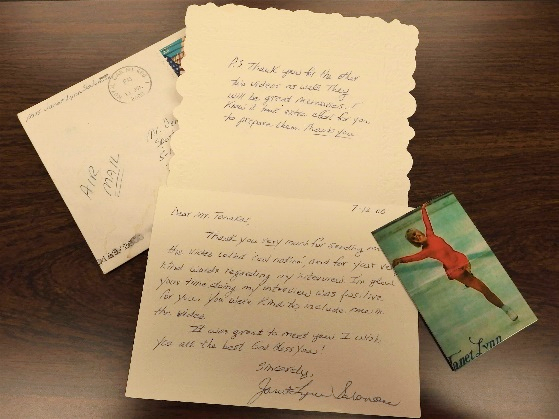 Mrs. Janet Lynn Salomon
AIR
MAIL
P.S. Thank you for the other
two videos as well. They
will be great memories. I
know it took extra effort for you
to prepare them. Thank you
7-12-05
Dear Mr.
Thank you very much for sending me
the video and for your very
kind words regarding my interview. I'm glad
your time doing my interview was positive
for you. You were kind to include me in
the video.
It was great to meet you. I wish
you all the best. God bless you!
Sincerely,
Janet Lynn Salomon
Janet Lynn